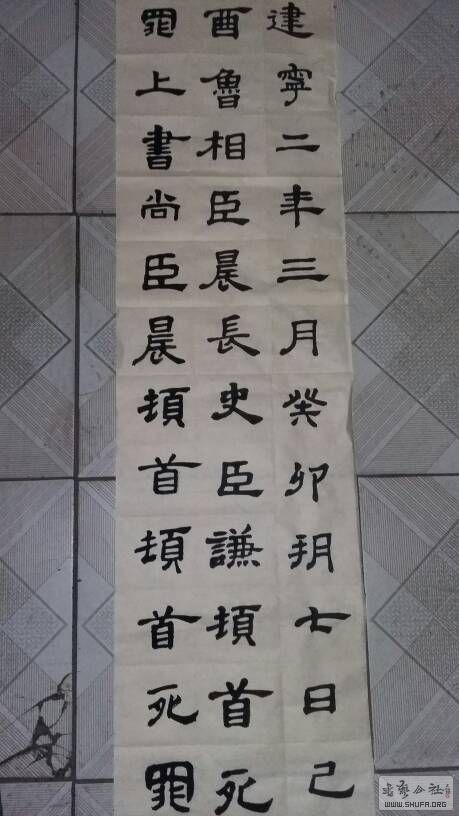 建寧二年三月癸卯朔七日己
酉魯相臣晨長史臣謙頓首死
罪上書尚臣晨頓首頓首死罪
WWW.SHUFA.ORG